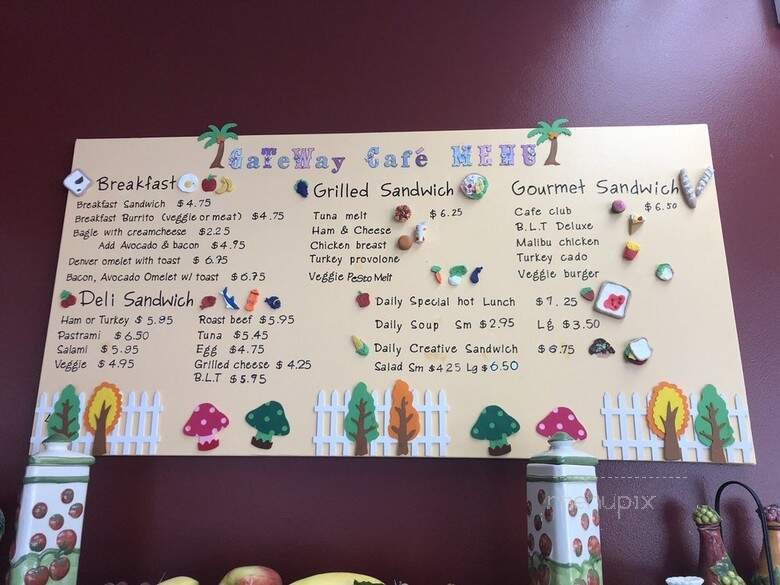 GaTeWay Café MENU
Breakfast
Breakfast Sandwich $4.75
Breakfast Burrito (veggie or meat) $4.75
Bagle with creamcheese $2.25
Add Avocado & bacon $4.95
Denver omelet with toast $6.75
Bacon, Avocado Omelet w/ toast $6.75
Grilled Sandwich
$6.25
Tuna melt
Ham & Cheese
Chicken breast
Turkey provolone
Veggie Pesto Melt
Gourmet Sandwich
$6.50
Cafe club
B.L.T Deluxe
Malibu chicken
Turkey cado
Veggie burger
Deli Sandwich
Ham or Turkey $5.95
Pastrami $6.50
Salami $5.95
Veggie $4.95
Roast beef $5.95
Tuna $5.45
Egg $4.75
Grilled cheese $4.25
B.L.T $5.95
Daily Special hot Lunch $7.25
Daily Soup Sm $2.95 Lg $3.50
Daily Creative Sandwich $6.75
Salad Sm $4.25 Lg $6.50
menupix